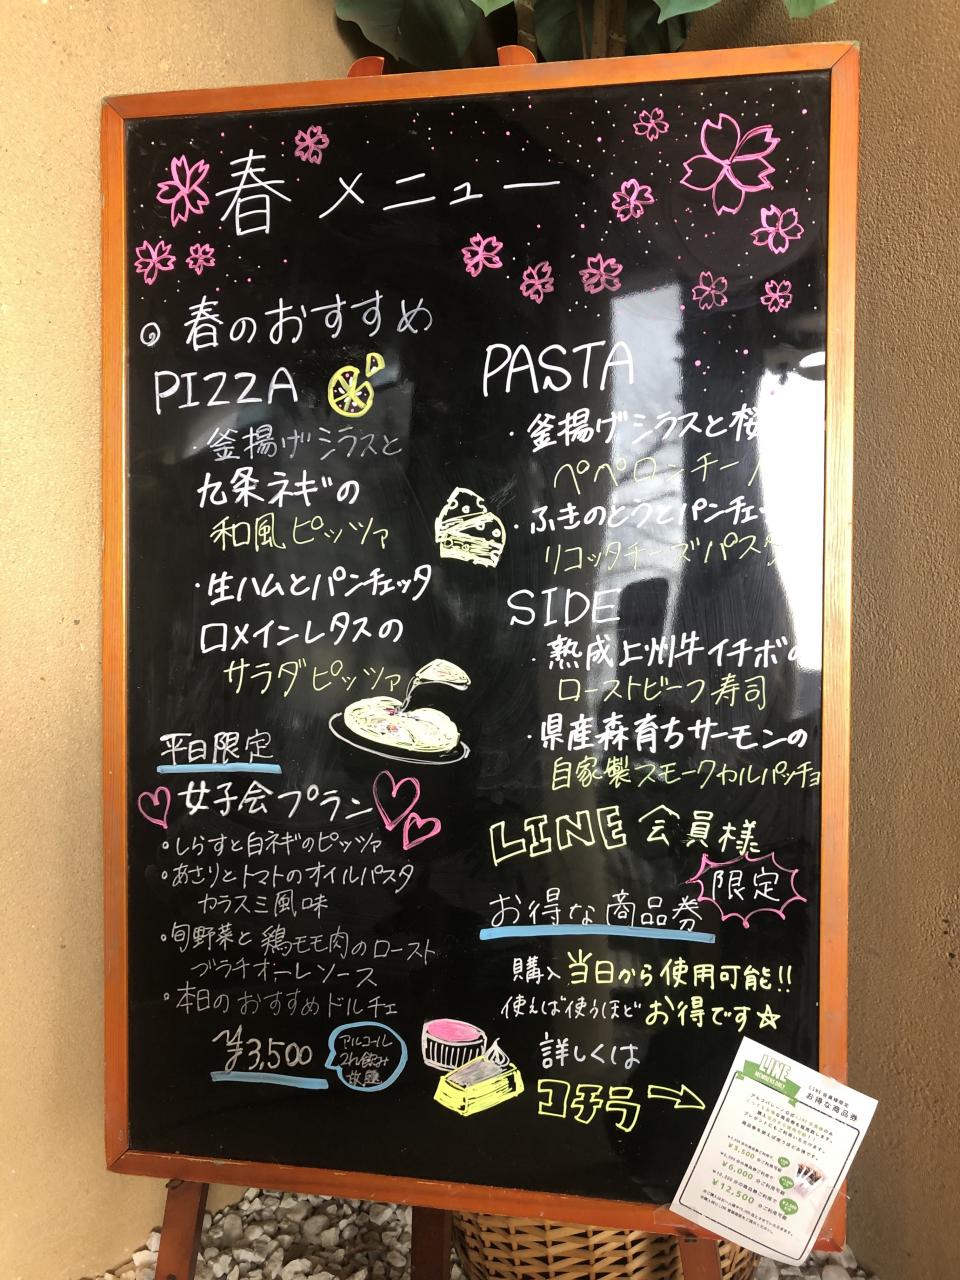 春 メニュー
◎ 春のおすすめ
PIZZA
・釜揚げシラスと
九条ネギの
和風ピッツァ
・生ハムとパンチェッタ
ロメインレタスの
サラダピッツァ
平日限定
女子会プラン
・しらすと白ネギのピッツァ
・あさりとトマトのオイルパスタ
カラスミ風味
・旬野菜と鶏モモ肉のロースト
ヴラチオーレソース
・本日のおすすめドルチェ
¥3,500
アルコール
2h飲み
放題
PASTA
・釜揚げシラスと桜
ペペロンチーノ
・ふきのとうとパンチェッ
リコッタチーズパスタ
SIDE
・熟成上州牛イチボの
ローストビーフ寿司
・県産森育ちサーモンの
自家製スモークカルパッチョ
LINE会員様
限定
お得な商品券
購入当日から使用可能!!
使えば使うほどお得です☆
詳しくは
コチラ→
LINE
MEMBERS ONLY
LINE会員様限定
お得な商品券
¥3,500 分ご利用可能
¥6,000 分ご利用可能
¥12,500 分ご利用可能